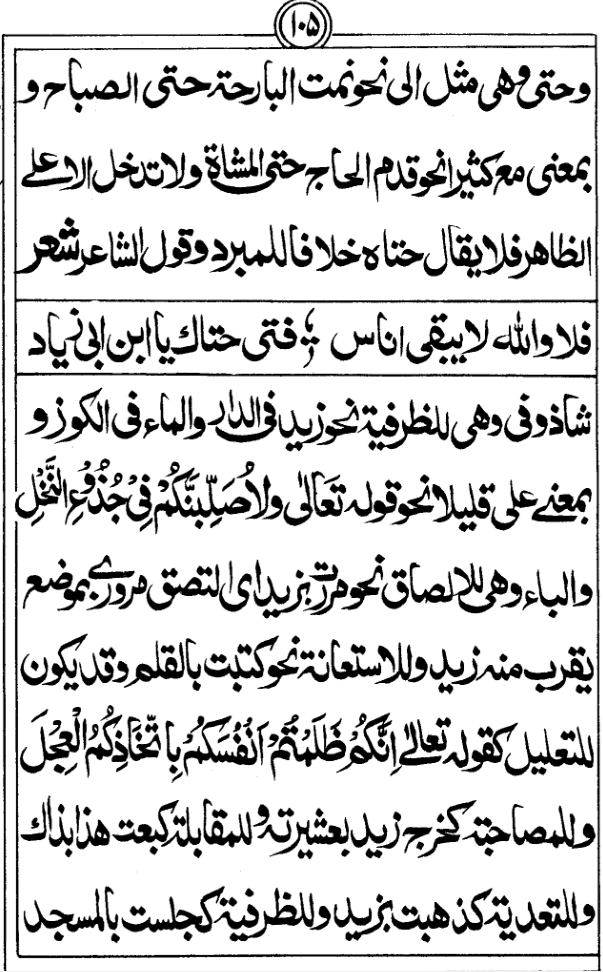 ۱۰۵
وحتى وهى مثل الى نحو نمت البارحة حتى الصباح و
بمعنى مع كثيرا نحو قدم الحاج حتى المشاة ولا تدخل الا على
الظاهر فلا يقال حتاه خلافا للمبرد وقول الشاعر شعر
فلا والله لا يبقى اناس ؛ فتى حتاك يا ابن ابى زياد
شاذ وفى وهى للظرفية نحو زيد فى الدار والماء فى الكوز و
بمعنے على قليلا نحو قوله تَعَالٰى ولَاُصَلِّبَنَّكُمْ فِىْ جُذُوْعِ النَّخْلِ
والباء وهى للالصاق نحو مررت بزيد اى التصق مرورے بموضع
يقرب منه زيد وللاستعانة نحو كتبت بالقلم وقد يكون
للتعليل كقوله تعالےٰ اِنَّكُمْ ظَلَمْتُمْ اَنْفُسَكُمْ بِاتِّخَاذِكُمُ الْعِجْلَ
وللمصاحبة كخرج زيد بعشيرته وللمقابلة كبعت هذا بذاك
وللتعدية كذهبت بزيد وللظرفية كجلست بالمسجد